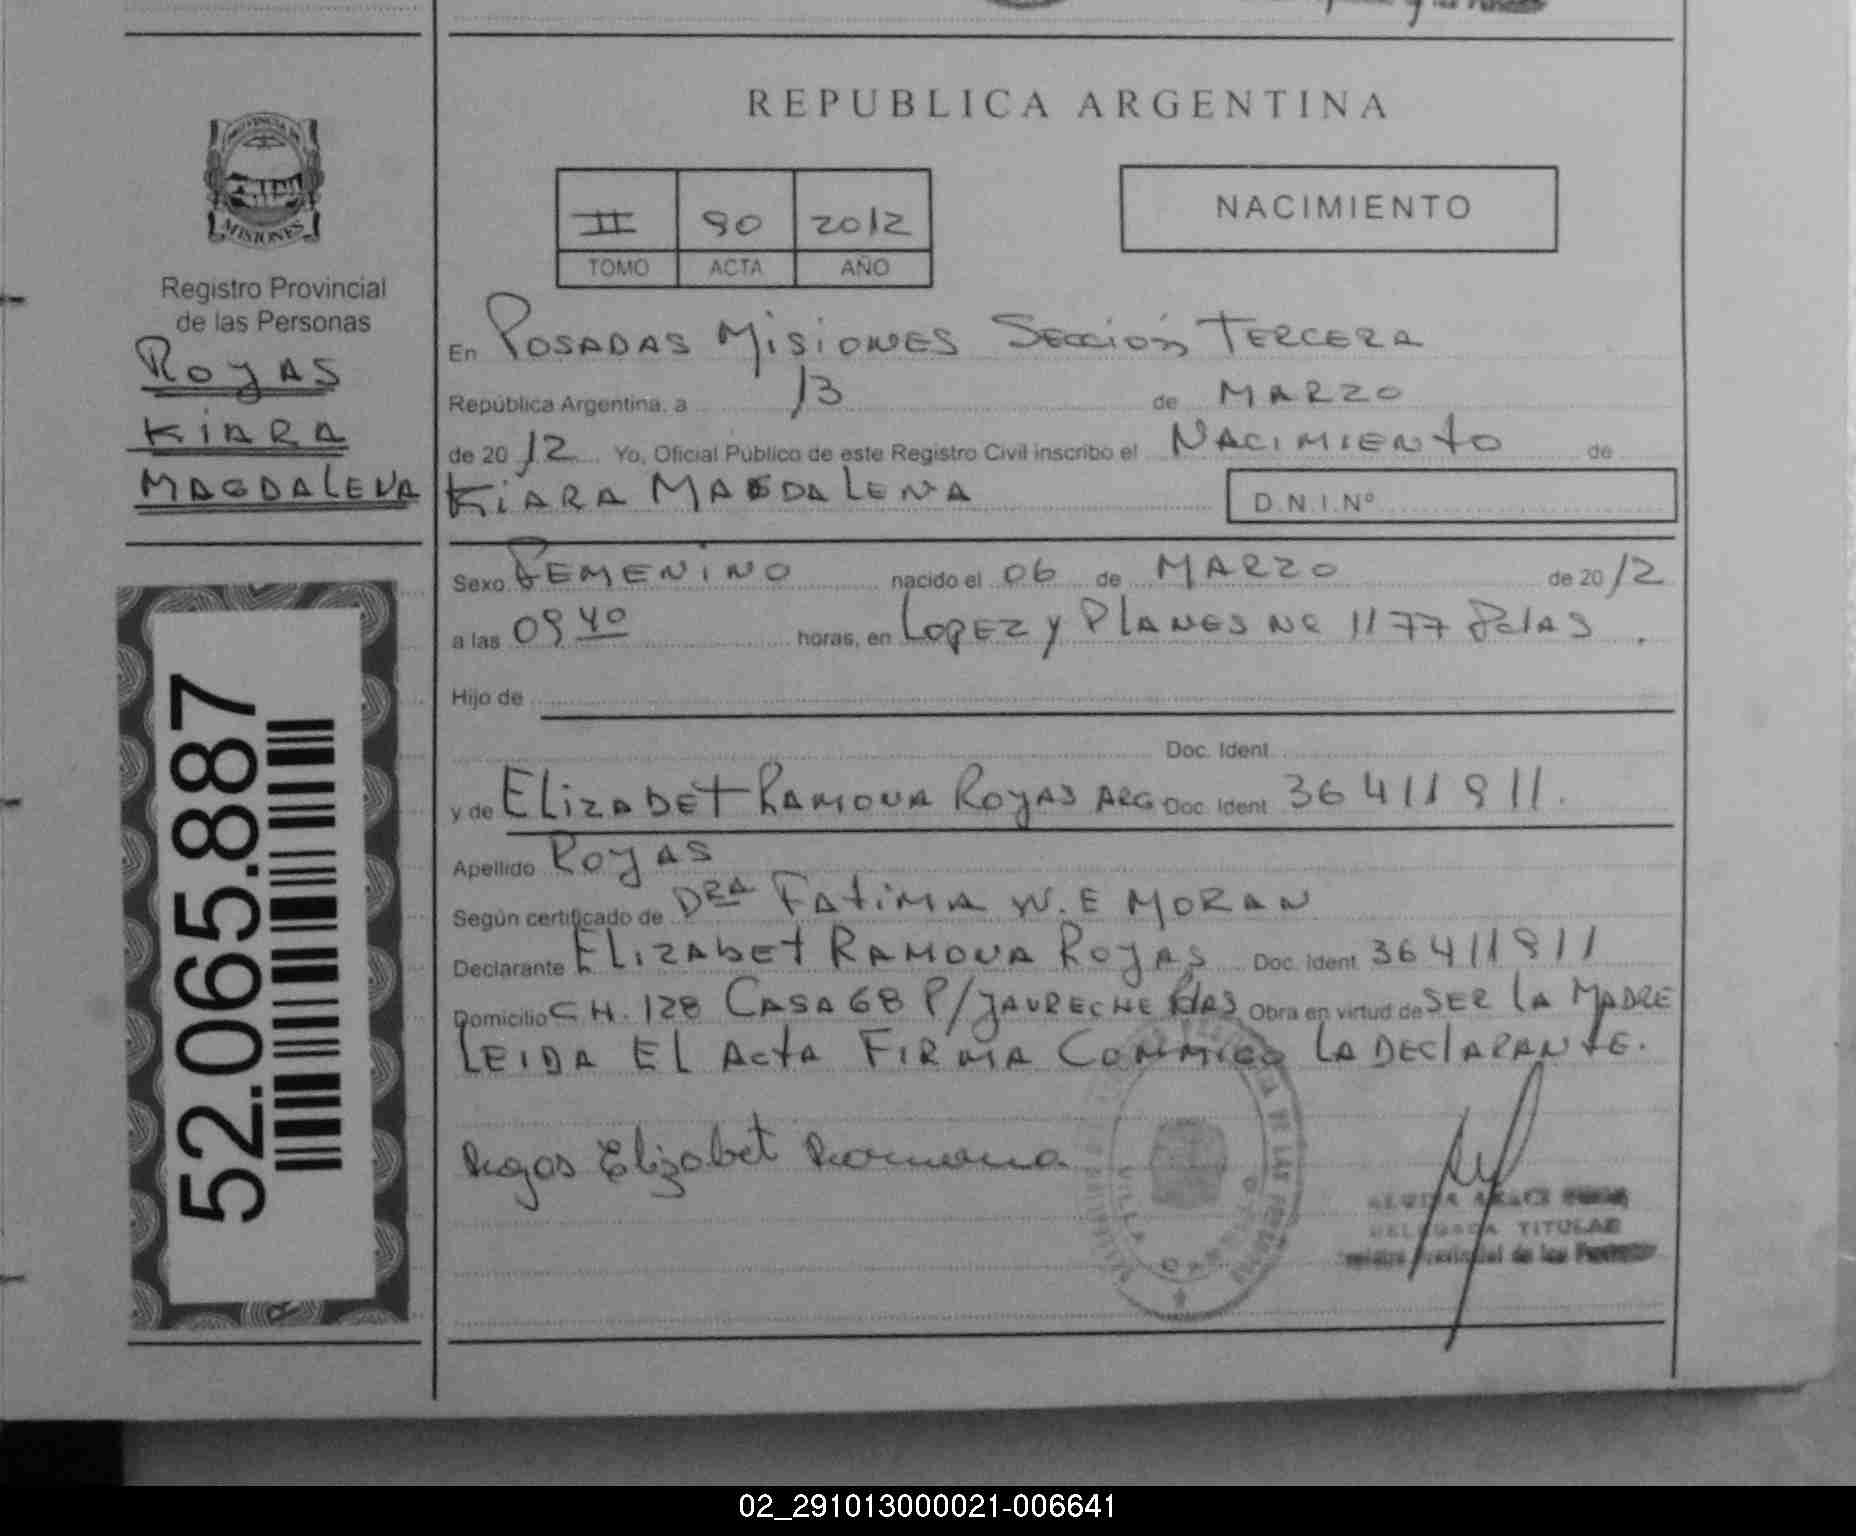 REPUBLICA ARGENTINA
PROVINCIA DE
MISIONES
Registro Provincial
de las Personas
ROYAS
KIARA
MAGDALENA
52.065.887
II 90 2012
TOMO ACTA AÑO
NACIMIENTO
En POSADAS MISIONES SECCIÓN TERCERA
República Argentina, a 13 de MARZO
de 2012 Yo, Oficial Público de este Registro Civil inscribo el NACIMIENTO de
KIARA MAGDALENA D.N.I.Nº
Sexo FEMENINO nacido el 06 de MARZO de 2012
a las 09 40 horas, en LOPEZ y PLANES Nº 1177 Pdas.
Hijo de
Doc. Ident.
y de ELIZABET RAMONA ROYAS ARG Doc. Ident. 36411911.
Apellido ROYAS
Según certificado de DRA FATIMA W.E MORAN
Declarante ELIZABET RAMONA ROYAS Doc. Ident. 36411911
Domicilio CH. 128 CASA 68 P/JAURECHE Pdas Obra en virtud de SER LA MADRE
LEIDA EL ACTA FIRMA CONMIGO LA DECLARANTE.
Rojas Elizabet Ramona
DELEGADA TITULAR
Provincial de las Personas
02_291013000021-006641